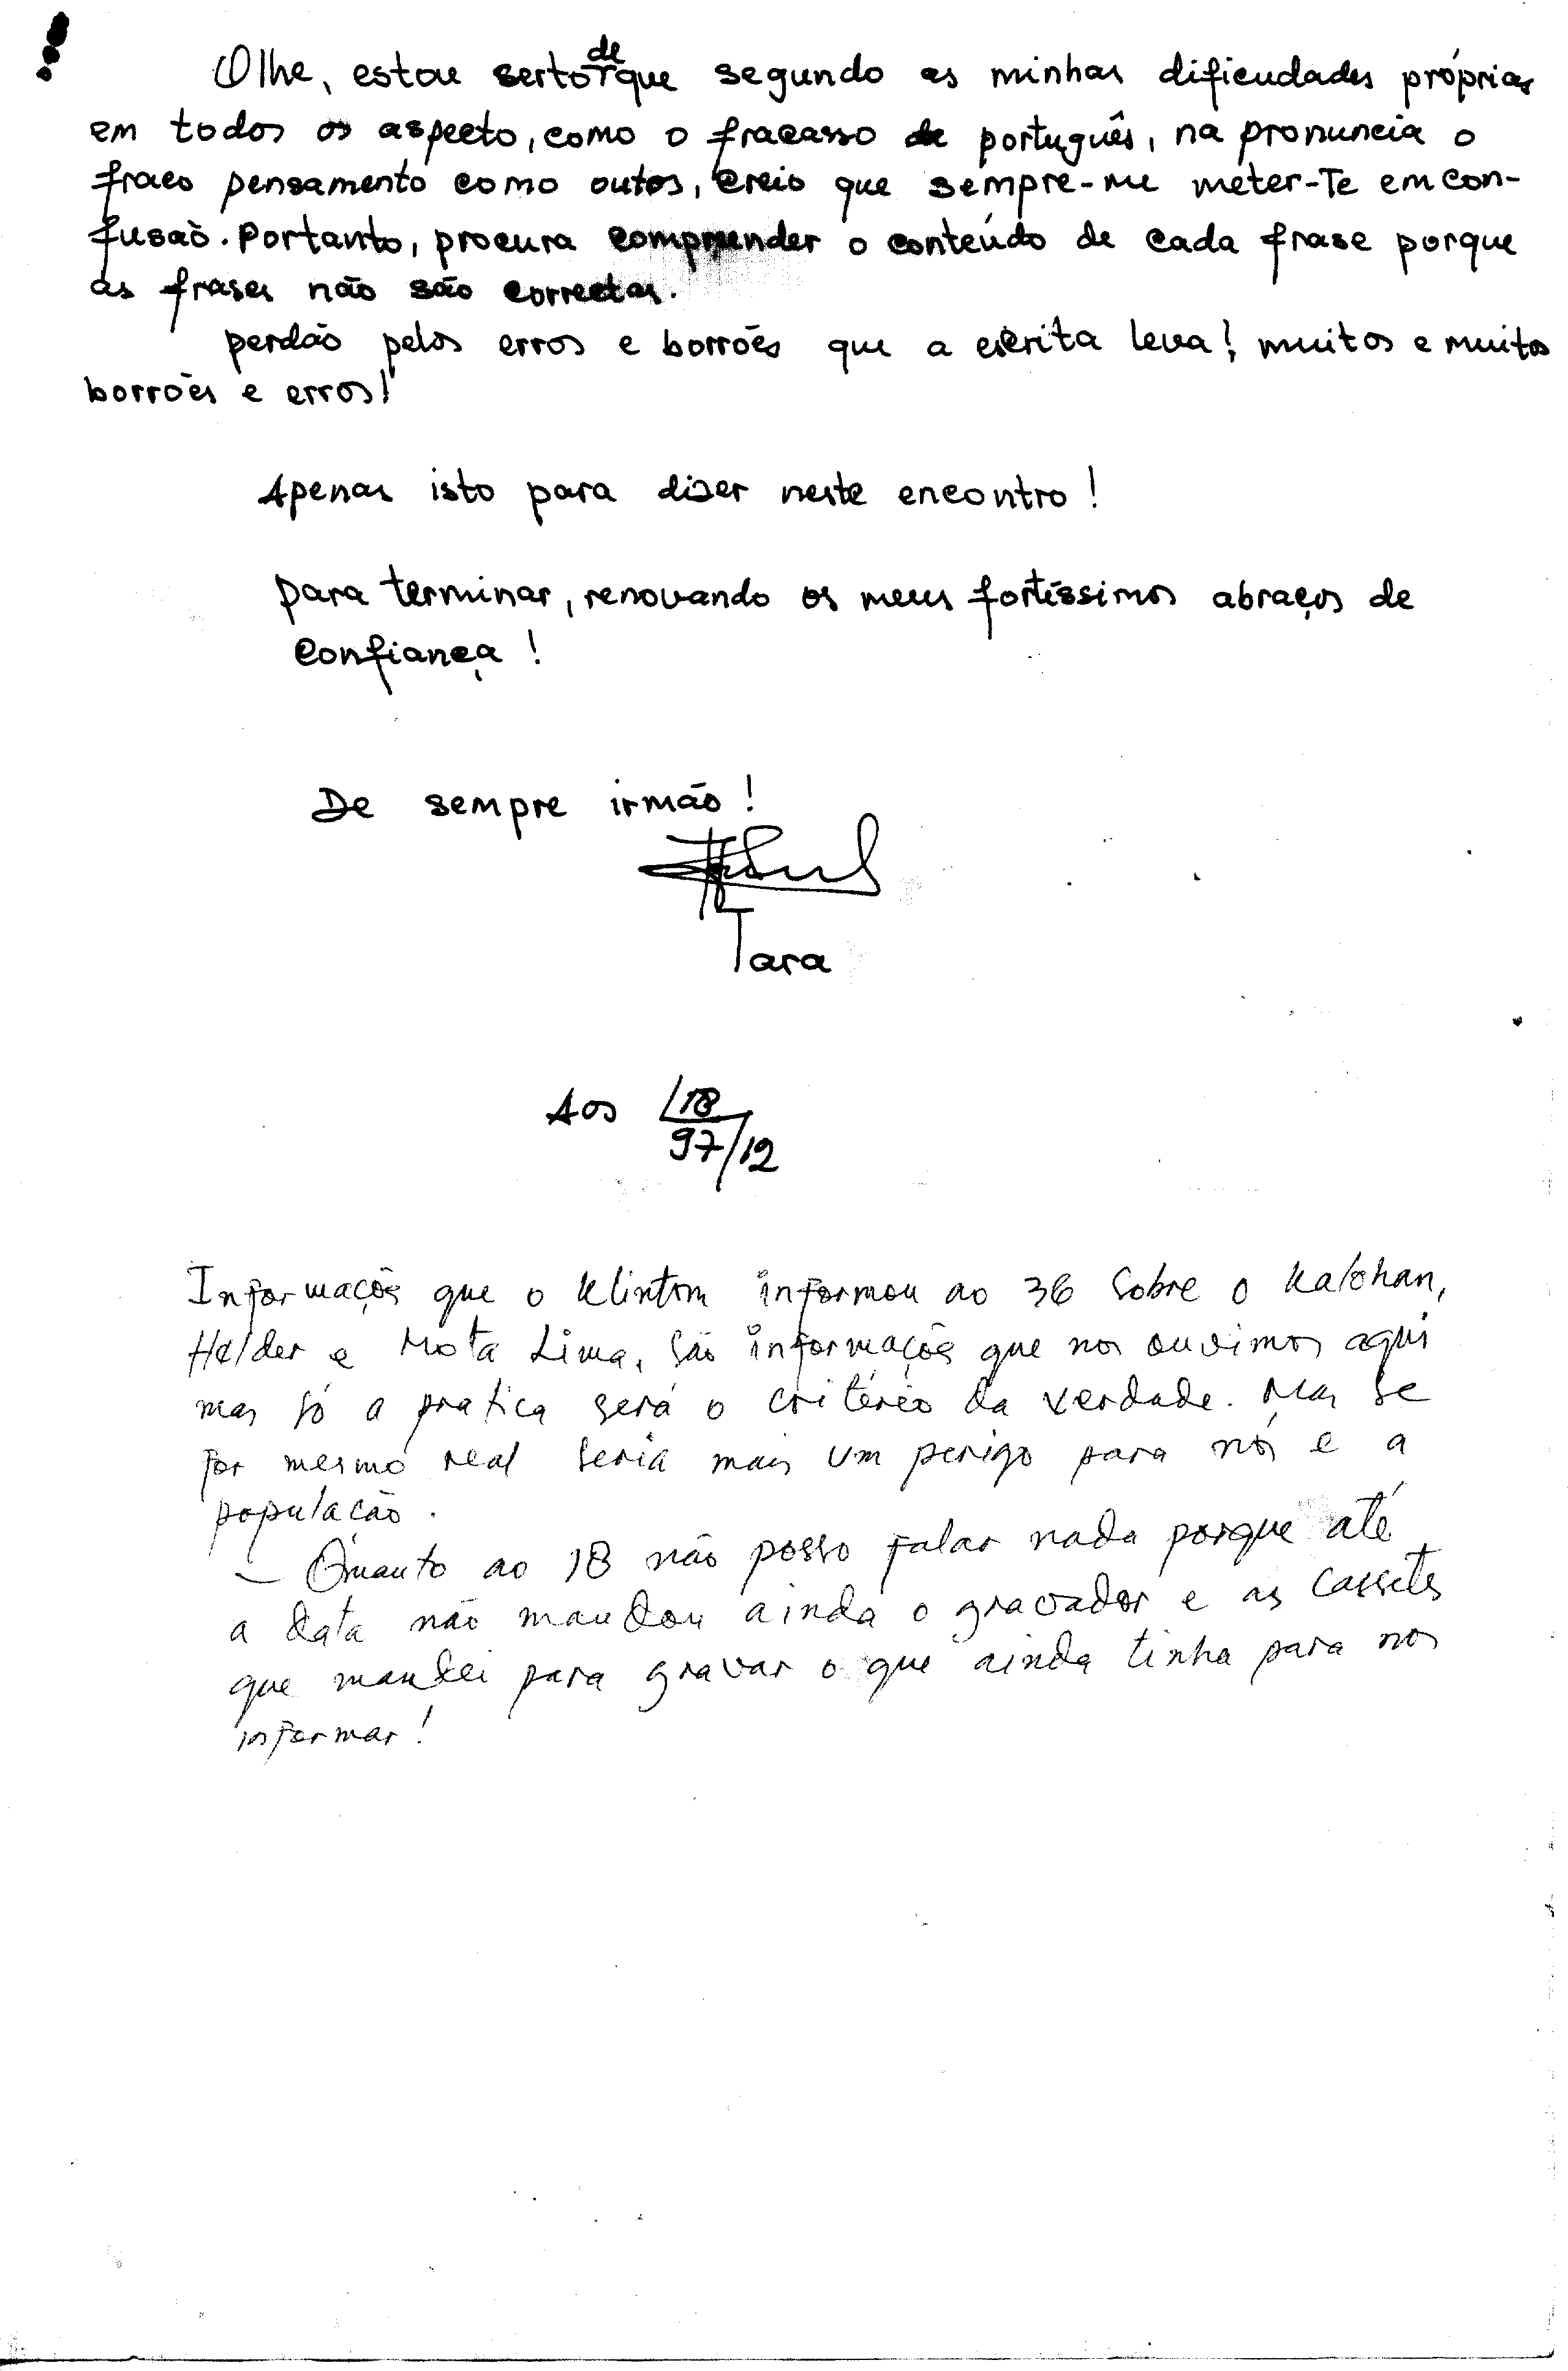 Olhe, estou serto de que segundo as minhas dificudades próprias
em todos os aspecto, como o fracasso de português, na pronuncia o
fraco pensamento como outos, creio que sempre-me meter-Te em con-
fusão. Portanto, procura compreender o conteúdo de cada frase porque
as frases não são correctas.
perdão pelos erros e borrões que a escrita leva! muitos e muitos
borrões e erros!
Apenas isto para dizer neste encontro!
para terminar, renovando os meus fortíssimos abraços de
confiança!
De sempre irmão!
Tara
Aos 18
97/12
Informaçõs que o Klinton informou ao 36 sobre o Kalohan,
Helder e Mota Lima, são informaçõs que nos ouvimos aqui
mas só a pratica será o critério da verdade. Mas se
for mesmo real seria mais um perigo para nós e a
população.
- Quanto ao 18 não posso falar nada porque até
a data não mandou ainda o gravador e as cassets
que mandei para gravar o que ainda tinha para nos
informar!